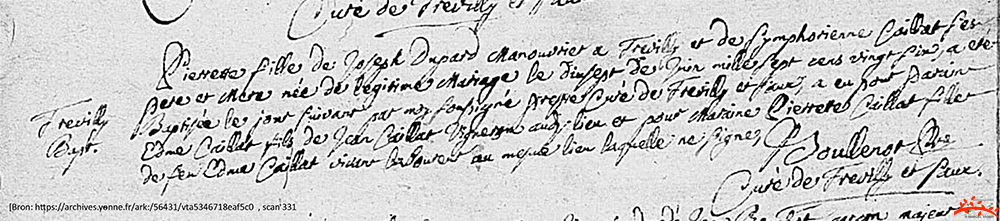 Curé de Trevilly et faux
Pierrette fille de Joseph Dupard Manouvrier a Trevilly et de Symphorienne Caillat ses
pere et Mere née de legitime Mariage le dixsept de Juin mille sept cens vingt six, a eté
Trevilly Baptisée le jour suivant par moy soussigné prestre Curé de Trevilly et faux, a eu pour paraine
Bapt. Edme Caillat fils de Jean Caillat Vigneron audit lieu et pour Maraine Pierrete Caillat fille
de feu Edme Caillat vivant laboureur au mesme lieu laquelle ne signe,
Boullenot Pbre
Curé de Trevilly et faux.
[Bron: https://archives.yonne.fr/ark:/56431/vta5346718eaf5c0 , scan'331